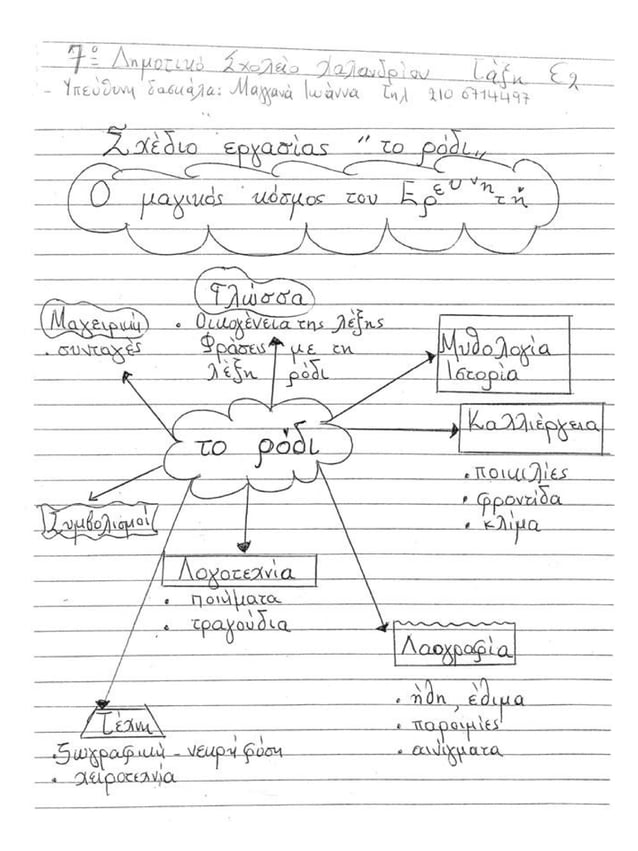 7ο Δημοτικό Σχολείο Χαλανδρίου Τάξη Ε2
- Υπεύθυνη δασκάλα: Μαγγανά Ιωάννα Τηλ 210 6714497
Σχέδιο εργασίας "το ρόδι"
Ο μαγικός κόσμος του Ερευνητή
Γλώσσα
• Οικογένεια της λέξης
Φράσεις με τη
λέξη ρόδι
Μαγειρική
• συνταγές
Μυθολογία
Ιστορία
Καλλιέργεια
• ποικιλίες
• φροντίδα
• κλίμα
το ρόδι
Συμβολισμοί
Λογοτεχνία
• ποιήματα
• τραγούδια
Λαογραφία
• ήθη, έθιμα
• παροιμίες
• αινίγματα
Τέχνη
• ζωγραφική - νεκρή φύση
• χειροτεχνία